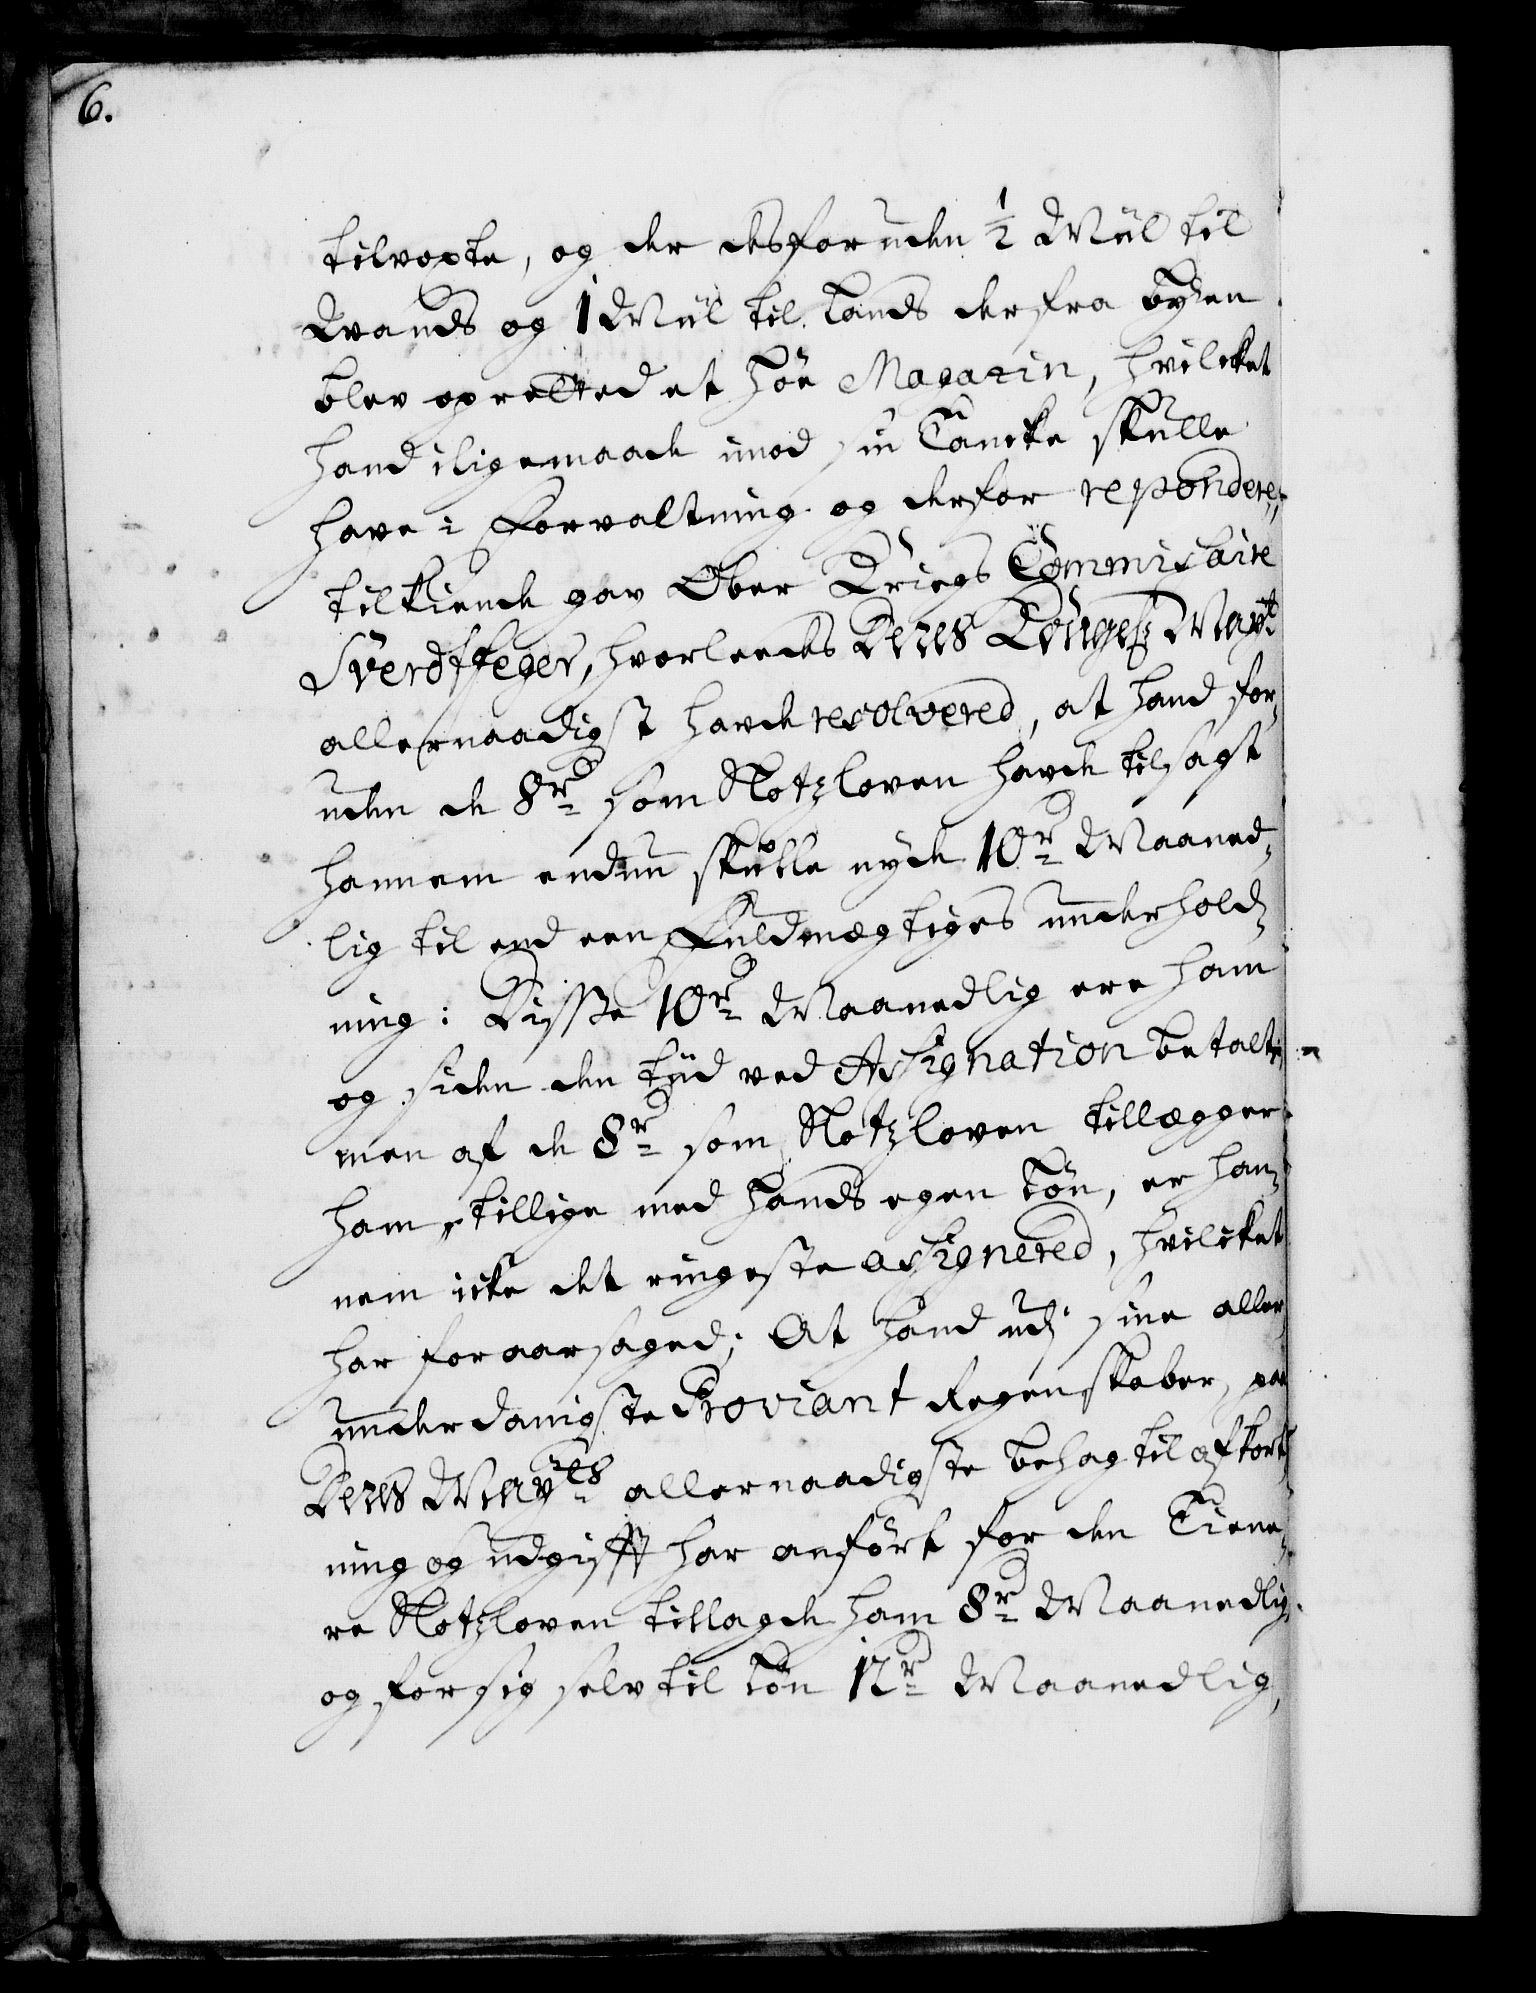 6.
tilvoxte, og der desforuden ½ Miil til
Vands og 1 Miil til Lands derfra byen
blev opretted et Höe Magazin, hvilcket
hand iligemaade imod sin Tancke skulle
have i Forvaltning og derfor repondere,
tilkiende gav Ober Kriegs Commissaire
Sverdtfeger, hvorleedes Deres Kongel: May:t
allernaadigst havde resolvered, at hand for-
uden de 8 rd som Slotzloven havde tilsagt
hannem endnu skulle nyde 10 rd Maaned-
lig til end een Fuldmægtiges underhold-
ning: Disse 10 rd Maanedlig ere ham
og siden den tiid ved Assignation betalte,
men af de 8 rd som Slotzloven tillegger
ham, tillige med Hands egen Lön, er han-
nem icke det ringeste assignered, hvilcket
har foraarsaged; At Hand udj sine aller-
underdanigste Proviant Regenskaber, paa
Deres May:ts allernaadigste behag til afkort-
ning og udgifft har anfört for den Tiene-
re Slotzloven tillagde ham 8 rd Maanedlig
og for sig selv til Lön 12 rd Maanedlig,